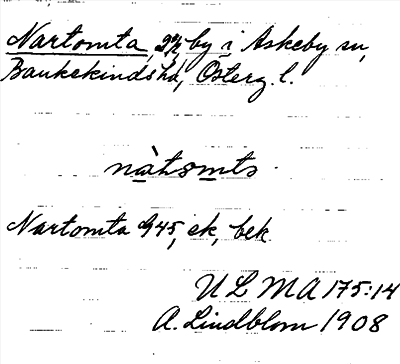 Nartomta, by i Askeby sn,
Bankekindshd, Österg. l.
nàtsmts
Nartomta 945, ek, bek
ULMA 175:14
A. Lindblom 1908